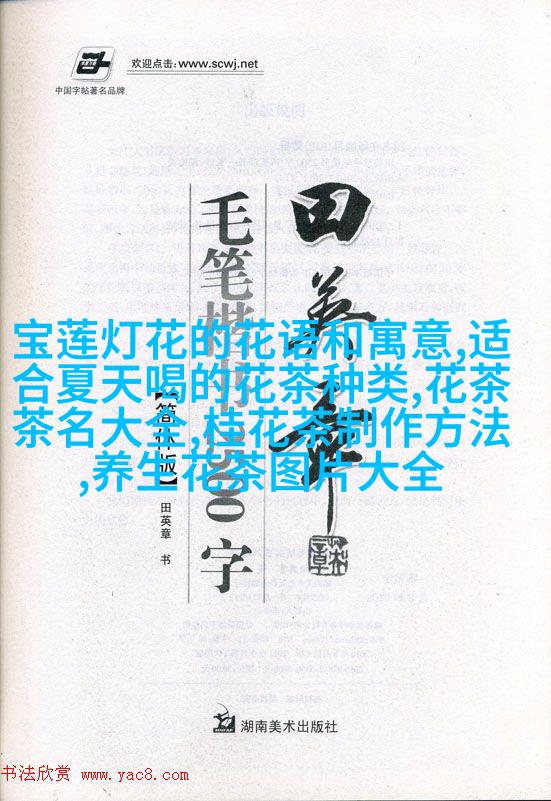 欢迎点击:www.scwj.net
中国字帖著名品牌
田英章
毛笔楷书3500字
【简体版】
田英章 书
宝莲灯花的花语和寓意,适
合夏天喝的花茶种类,花茶
茶名大全,桂花茶制作方法
,养生花茶图片大全
湖南美术出版社
书法欣赏 www.yac8.com